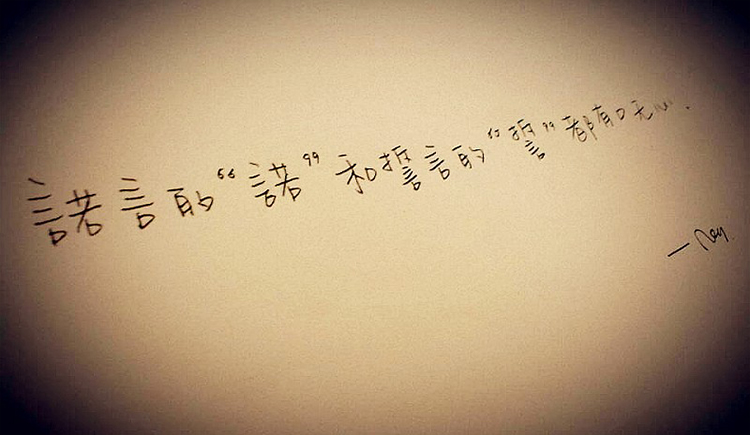 諾言的“諾”和誓言的“誓”都有口无心.
—Ray